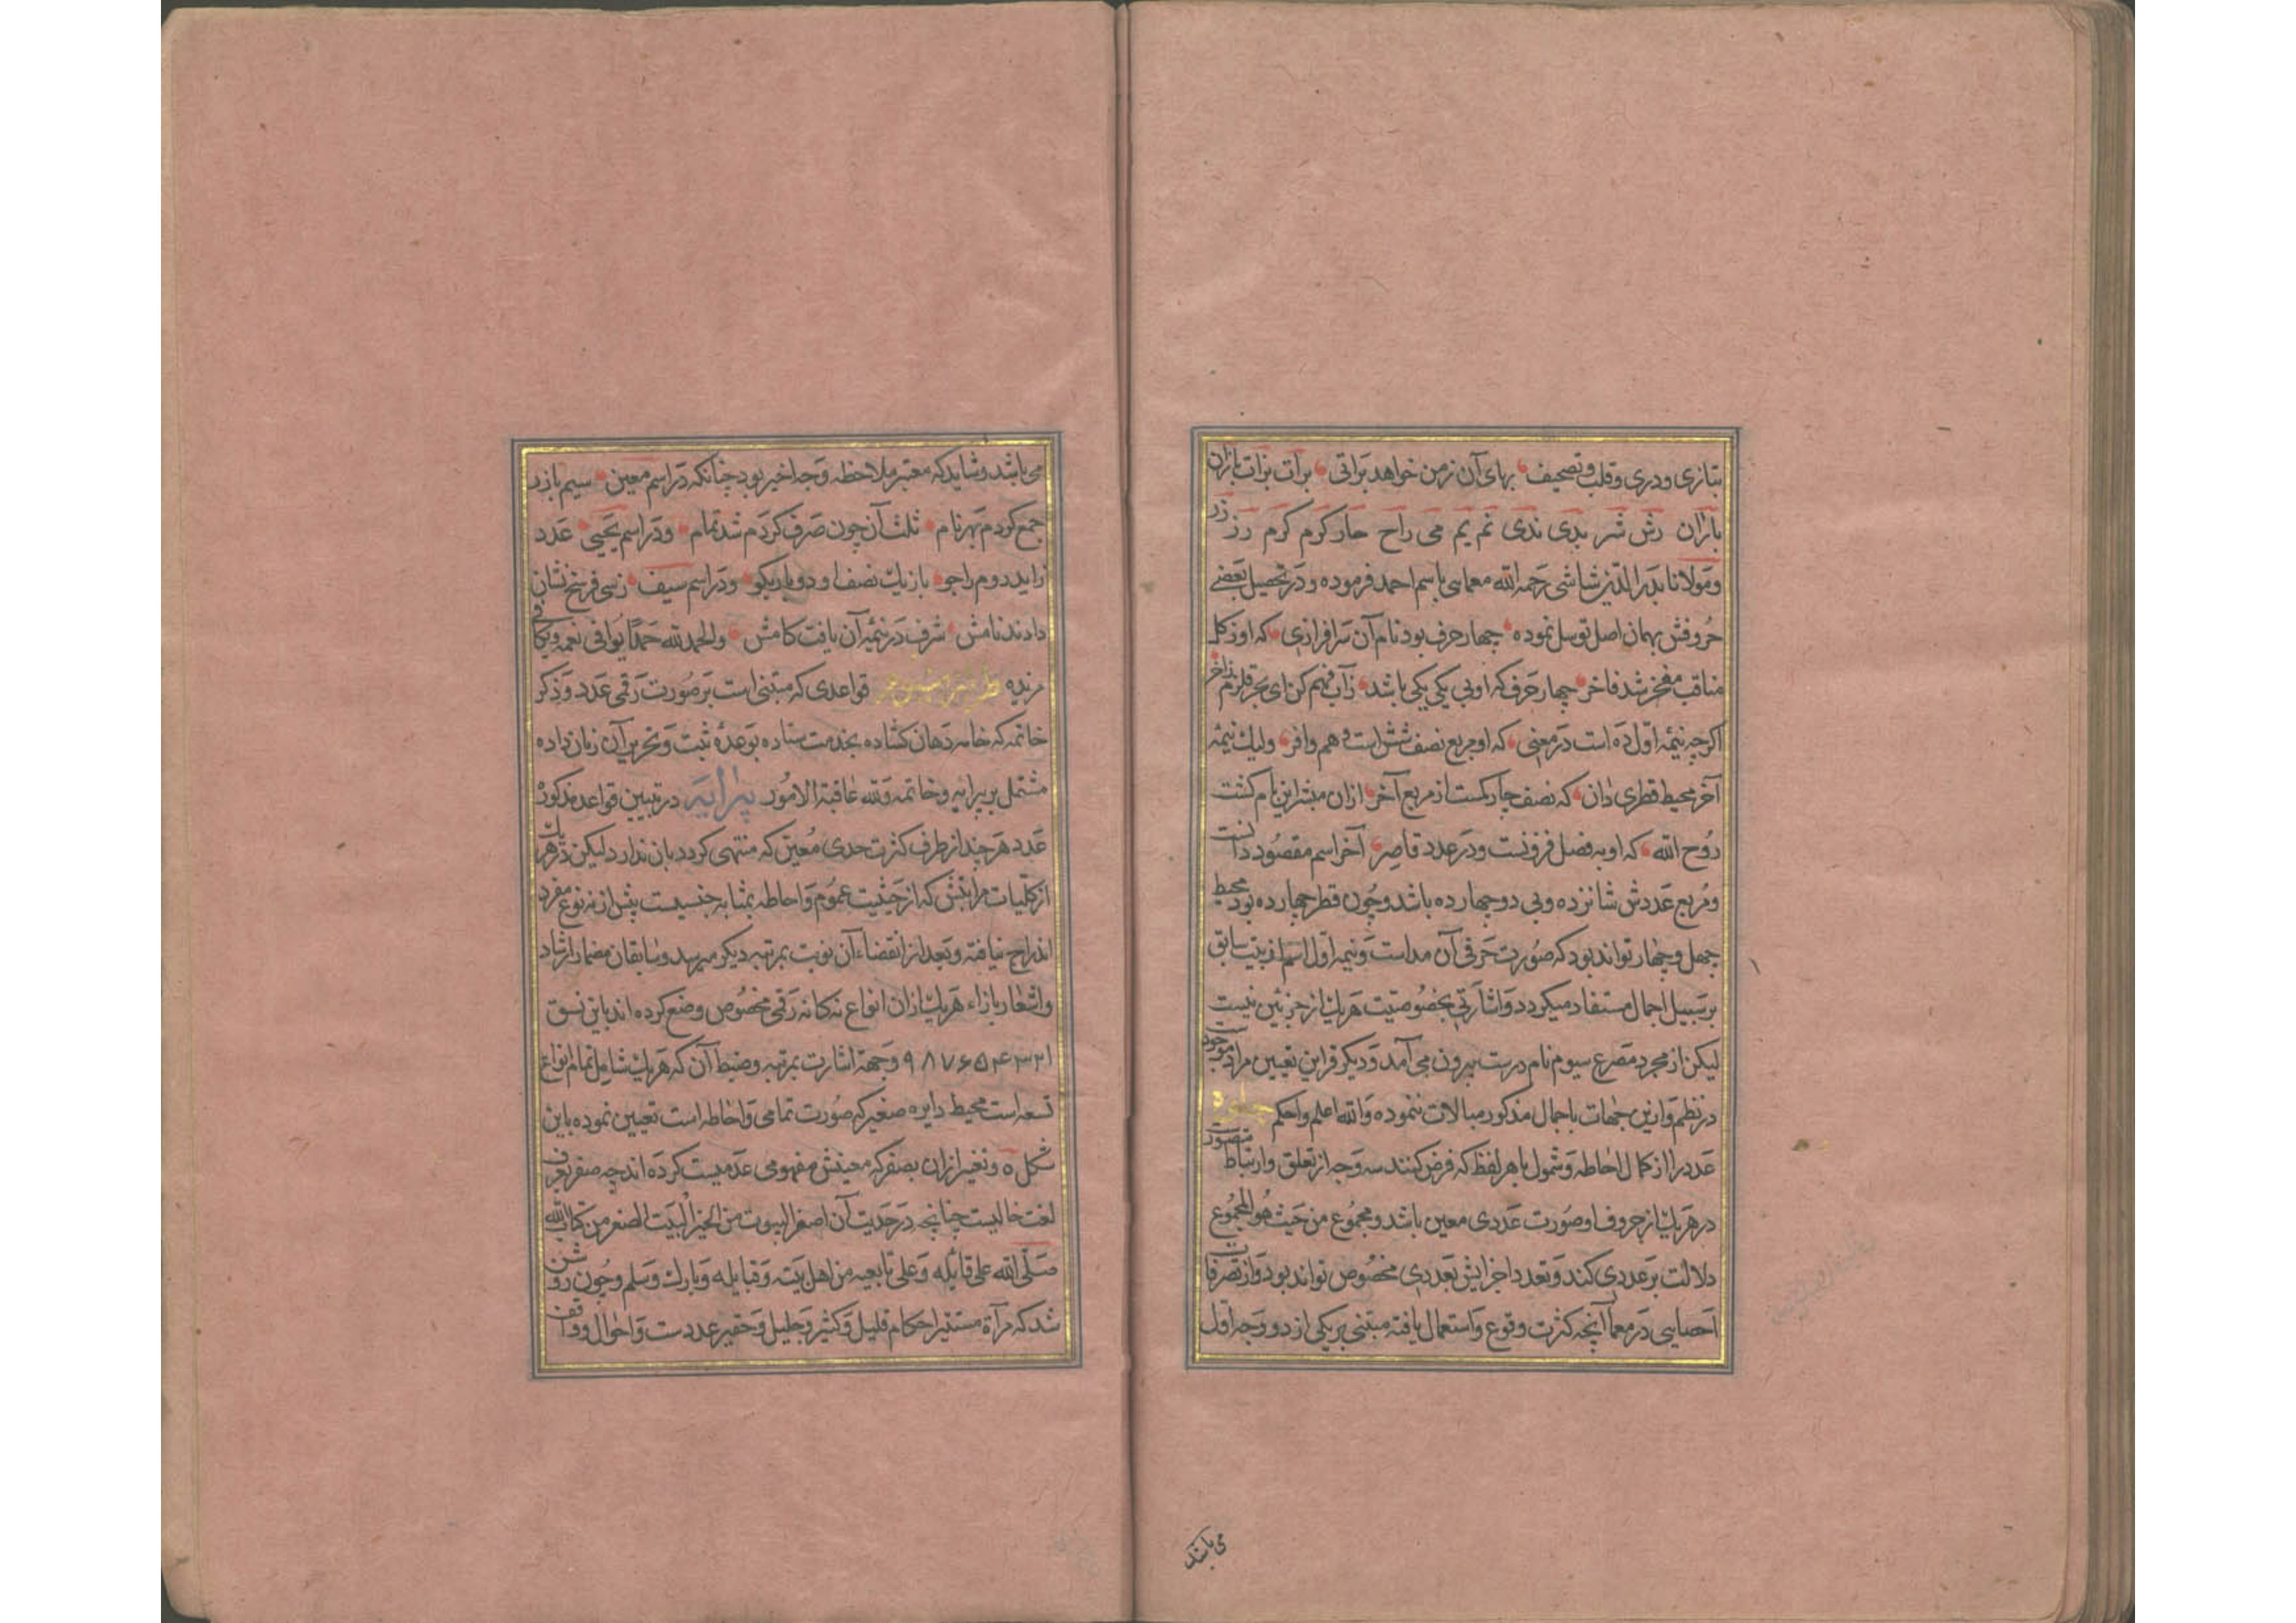 بتازی ودری وقلب وتصحیف بهای آن زمن خواهد براتی برآت بزات باران
باژان رش شر بدی ندی نم یم می راح حار کرم کرم رز زر
ومولانا بدرالدین شاشی رحمه الله معمایی باسم احمد فرموده ودر تحصیل بعضے
حروفش بهمان اصل توسل نموده چهار حرف بود نام آن سرافرازی که اوز کل
مناقب مفخر شد فاخر چهار حرف که اوبی یکی یکی باشد زآب فهم کن ای بحر قلزم زاخر
اکرچه نیمه اول ده است در معنی که او بربع نصف شش است وهم وافر ولیك نیمه
آخر محیط قطری دان که نصف چار کمست از مربع آخر ازان مبشر این نام کشت
روح الله که او به فضل فزونست ودر عدد قاصر آخر اسم مقصود دانست
ومربع عددش شانزده وبی دو چهارده باشد وچون قطر چهارده بود محیط
چهل وچهار تواند بود که صورت حرفی آن مداست ونیمه اول اسم از بیت سابق
بر سبیل اجمال مستفاد میکردد واشارتی بخصوصیت هریك از جزئین نیست
لیکن از مجرد مصرع سیوم نام درست بیرون می آمد ودیکر قراین تعیین مراد موجود
در نظم وازین جهات باجمال مذکور مبالات ننموده والله اعلم واحکم
عدد را از کمال احاطه وشمول با هر لفظ که فرض کنند سه وجه از تعلق وارتباط متصور
در هریك از حروف او صورت عددی معین باشد ومجموع من حیث هو المجموع
دلالت بر عددی کند وتعدد اجزایش بعددی مخصوص تواند بود واز تصرفات
احصایی در معما آنچه کثرت وقوع واستعمال یافته مبتنی بر یکی از دو وجه اول
می باشد
می باشد وشاید که معتبر ملاحظه وجه اخیر بود چنانکه در اسم معین سیم بازر
جمع کردم بهر نام ثلث آن چون صرف کردم شد تمام ودر اسم یحیی عدد
زاید دوم راجو باز یك نصف او دو بار بکو ودر اسم سیف زسی فرسخ نشان
دادند نامش شرف در نیمه آن یافت کامش والحمد لله حمدا یوافی نعمه ویکافی
مزیده قواعدی که مبتنی است بر صورت رقمی عدد وذکر
خاتمه که خامه دهان کشاده بخدمت ستاده بوعده ثبت وتحریر آن زبان داده
مشتمل بر پیرایه وخاتمه ولله عاقبة الامور پیرایه در تبیین قواعد مذکوره
عدد هرچند از طرف کثرت حدی معین که منتهی کردد بان ندارد لیکن در هر یك
از کلیات مراتبش که از حیثیت عموم واحاطه بمثابه جنسیست بیش از نه نوع مفرد
اندراج نیافته وبعد از انقضاء آن نوبت بمرتبه دیکر میرسد وسابقان مضمار ارشاد
واشعار بازاء هریك ازان انواع نه کانه رقمی مخصوص وضع کرده اند باین نسق
۱ ۲ ۳ ۴ ۵ ۶ ۷ ۸ ۹ وجهة اشارت بمرتبه وضبط آن که هریك شامل تمام انواع
تسعه است محیط دایره صغیر که صورت تمامی واحاطه است تعیین نموده باین
شکل ه وتعبیر ازان بصفر که معنیش مفهومی عدمیست کرده اند چه صفر بعرف
لغت خالیست چنانچه در حدیث آن اصفر البیوت من الخیر البیت الصفر من کتاب الله
صلی الله علی قایله وعلی تابعیه من اهل بیته وقبایله وبارك وسلم وچون روشن
شد که مرآة مستنیر احکام قلیل وکثیر وجلیل وحقیر عددست واحوال وواقف